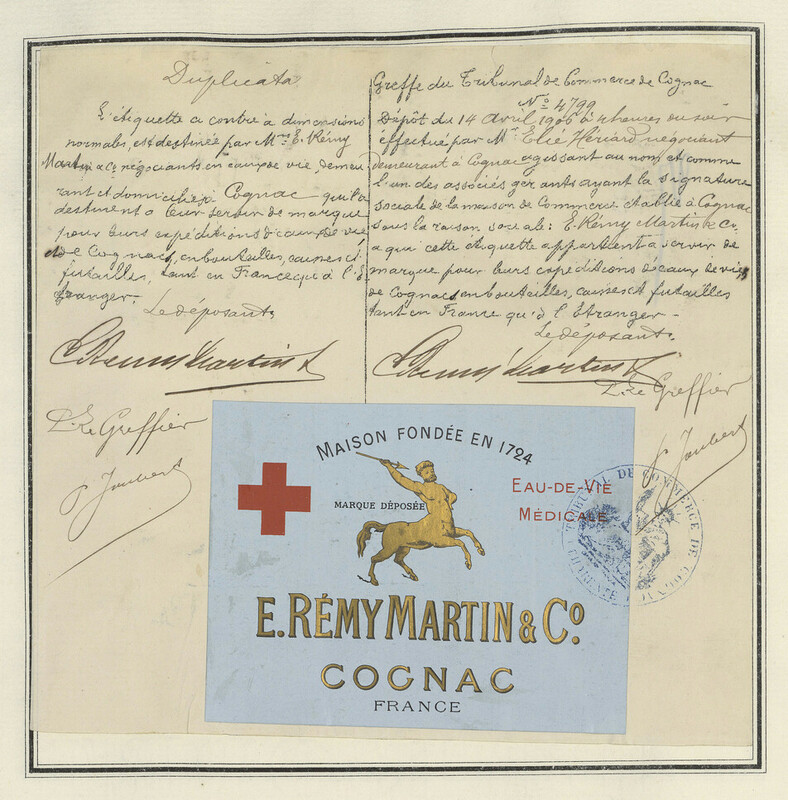 Duplicata
L'étiquette ci contre a dimensions
normales, est destinée par Mrs E. Rémy
Martin & Co négociants en eaux de vie, demeu
rant et domiciliés à Cognac qui la
destinent a leur servir de marque
pour leurs expéditions d'eaux de vie
de Cognac, en bouteilles, caisses et
futailles, tant en France qu'à l'É
tranger.
Le déposant,
E Remy Martin & Co
P. Le Greffier
P Joubert
Greffe du Tribunal de Commerce de Cognac
No 4799
Dépôt du 14 Avril 1906 à 4 heures du soir
effectué par Mr Elié Hériard négociant
demeurant à Cognac agissant au nom et comme
l'un des associés gérants ayant la signature
sociale de la maison de Commerce établie à Cognac
sous la raison sociale: E. Rémy Martin & Co.
a qui cette étiquette appartient a servir de
marque pour leurs expéditions d'eaux de vie
de Cognac, en bouteilles, caisses et futailles
tant en France qu'à l'Étranger -
Le déposant.
E Remy Martin & Co
P. Le Greffier
P Joubert
MAISON FONDÉE EN 1724
MARQUE DÉPOSÉE
EAU-DE-VIE
MÉDICALE
E. RÉMY MARTIN & Co
COGNAC
FRANCE
TRIBUNAL DE COMMERCE DE COGNAC
CHARENTE